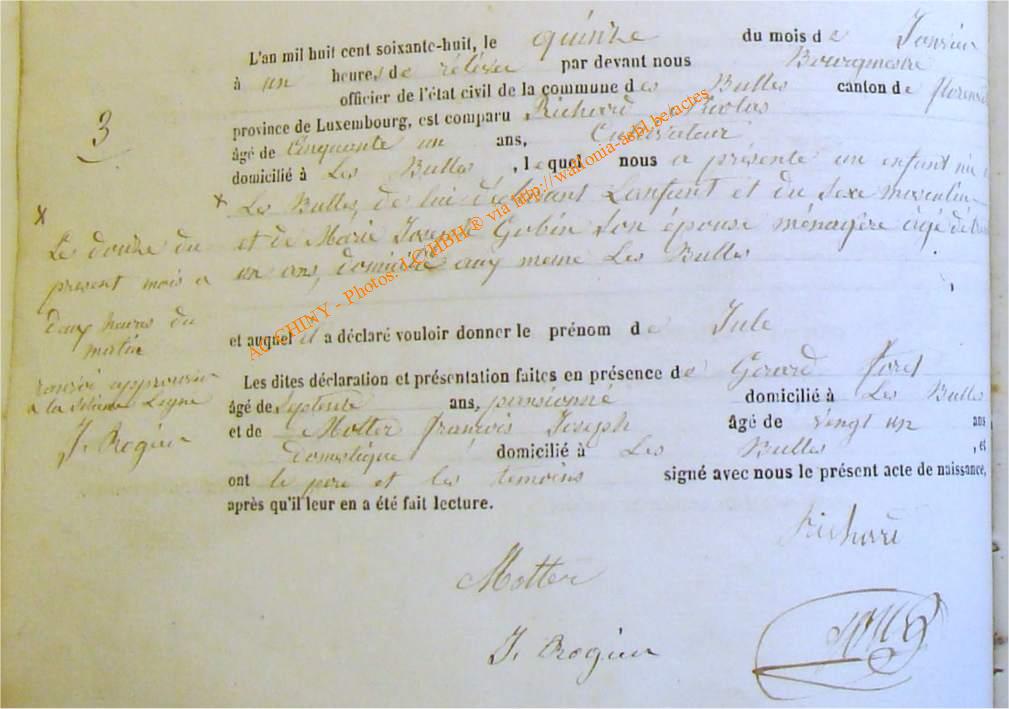 3
L'an mil huit cent soixante-huit, le quinze du mois de Janvier
à un heures de rélévée par devant nous Bourgmestre
officier de l'état civil de la commune des Bulles canton de Florenville
province de Luxembourg, est comparu Richard Nicolas
âgé de Cinquante un ans, Cultivateur
domicilié à Les Bulles, lequel nous a présenté un enfant né à
x Les Bulles, de lui déclarant L'enfant et du sexe masculin
et de Marie Joseph Gobin Son épouse ménagère âgé de
un ans, domicilié aux meme Les Bulles
et auquel il a déclaré vouloir donner le prénom de Jule
Les dites déclaration et présentation faites en présence de Gérard
âgé de Septente ans, pensionné domicilié à Les Bulles
et de Motter François Joseph âgé de vingt un ans
Domestique domicilié à Les Bulles, et
ont le père et les temoins signé avec nous le présent acte de naissance,
après qu'il leur en a été fait lecture.
x
Le douze du
present mois a
deux heures du
matin
renvoi
a la Ligne
J. Rogier
Richard
Motter
J. Rogier
AC CHINY - Photos: LCHBH® via http://wallonia-asbl.be/actes